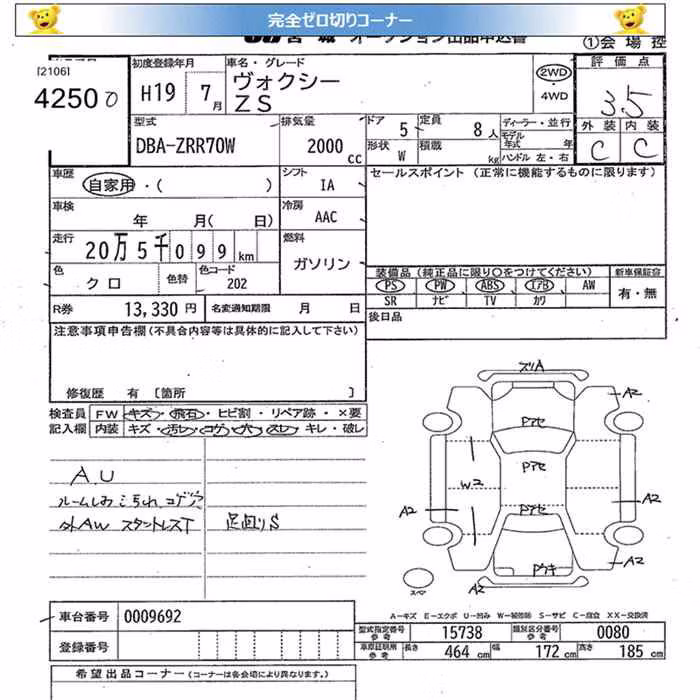 完全ゼロ切りコーナー
宮城 オークション出品申込書 ①会場控
[2106]
4250
初度登録年月 車名・グレード 評価点
H19 7月 ヴォクシー ZS 2WD ・ 4WD 3.5
外装 内装
C C
型式 排気量 ドア 5 定員 8人 ディーラー・並行
DBA-ZRR70W 2000cc 形状 W 積載 kg モデル年式 年
ハンドル 左・右
車歴 シフト セールスポイント (正常に機能するものに限ります)
自家用・( ) IA
車検 冷房
年 月( 日) AAC
走行 燃料
20万5千099km ガソリン
色 色替 色コード
クロ 202
装備品 (純正品に限り〇をつけてください) 新車保証書
PS PW ABS エアB AW 有・無
SR ナビ TV カワ
R券 13,330円 名変通知期限 月 日
後日品
注意事項申告欄 (不具合内容等は具体的に記入して下さい)
修復歴 有 [箇所 ]
検査員 FW キズ・飛石・ヒビ割・リペア跡・×要
記入欄 内装 キズ・汚レ・コゲ・穴・スレ・キレ・破レ
A.U
外AW スタントレスT 足回りS
ズリA
A2
Pアセ
Pアセ
W2
A2 Pアセ A2
Pウキ A2
A2
スペア
A－キズ E－エクボ U－凹み W－補修跡 S－サビ C－腐食 XX－交換済
車台番号 0009692
型式指定番号 参考 15738 類別区分番号 参考 0080
登録番号
車庫証明用 参考 長さ 464cm 幅 172cm 高さ 185cm
希望出品コーナー (コーナーは各会場により異なります)